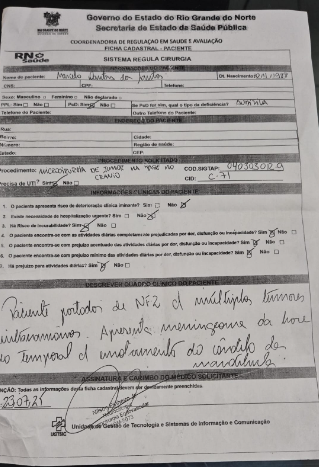 Governo do Estado do Rio Grande do Norte
Secretaria de Estado de Saúde Pública
COORDENADORIA DE REGULAÇÃO EM SAÚDE E AVALIAÇÃO
FICHA CADASTRAL - PACIENTE
RN Saúde
SISTEMA REGULA CIRURGIA
Nome do paciente: Marcelo dos Santos
Dt. Nascimento:
CNS: CPF: Telefone:
Sexo: Masculino □ Feminino □ Não declarado □
PPL: Sim □ Não □ PcD: Sim Não □ Se PcD for sim, qual o tipo da deficiência?
Telefone do Paciente: Outro Telefone do Paciente:
ENDEREÇO DO PACIENTE
Rua:
Bairro: Cidade:
Número: Região de saúde:
Estado: CEP:
PROCEDIMENTO SOLICITADO
Procedimento: MICROCIRURGIA DE TUMOR NA BASE DO CRÂNIO
COD.SIGTAP: 0403030129
Precisa de UTI? Sim Não □ CID: C-71
INFORMAÇÕES CLÍNICAS DO PACIENTE
1. O paciente apresenta risco de deterioração clínica iminente? Sim □ Não
2. Existe necessidade de hospitalização urgente? Sim □ Não
3. Há Risco de Irressecabilidade? Sim Não □
4. O paciente encontra-se com as atividades diárias completamente prejudicadas por dor, disfunção ou incapacidade? Sim Não □
5. O paciente encontra-se com prejuízo acentuado das atividades diárias por dor, disfunção ou incapacidade? Sim Não □
6. O paciente encontra-se com prejuízo mínimo das atividades diárias por dor, disfunção ou incapacidade? Sim Não □
7. Há prejuízo para atividades diárias? Sim Não □
DESCREVER QUADRO CLÍNICO DO PACIENTE
Paciente portador de NF2 c/ múltiplos tumores
intracranianos. Apresenta meningeoma da base
temporal c/ envolvimento do côndilo da
mandíbula.
ASSINATURA E CARIMBO DO MÉDICO SOLICITANTE
ATENÇÃO: Todas as informações desta ficha cadastral devem ser devidamente preenchidas.
23.07.25
Unidade de Gestão de Tecnologia e Sistemas de Informação e Comunicação